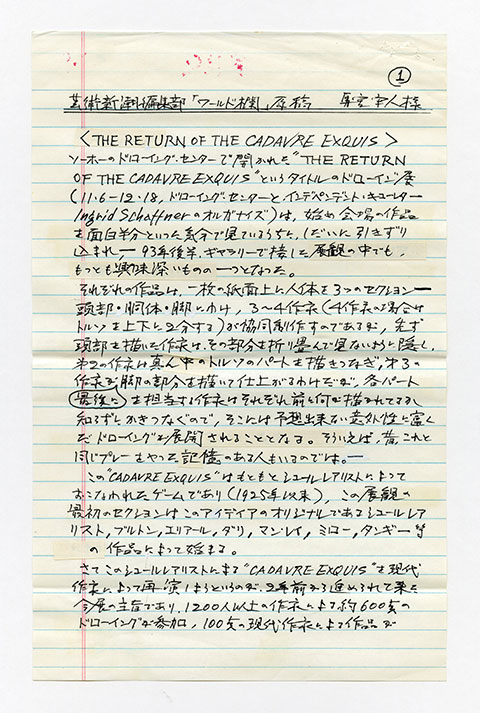 ①
芸術新潮編集部「ワールド欄」原稿 様
〈THE RETURN OF THE CADAVRE EXQUIS〉
ソーホーのドローイング・センターで開かれた"THE RETURN
OF THE CADAVRE EXQUIS"というタイトルのドローイング展
(11・6-12・18, ドローイング・センターとインデペンデント・キューレター
Ingrid Schaffnerのオルガナイズ)は, 始め会場の作品
を面白半分といった気分で見ているうちに, しだいに引きずり
込まれ, 93年後半, ギャラリーで接した展観の中でも,
もっとも興味深いものの一つとなった。
それぞれの作品は, 一枚の紙面上に人体を3つのセクション―
頭部・胴体・脚にわけ, 3〜4作家(4作家の場合は
トルソを上下に2分する)が協同制作するのであるが, 先ず
頭部を描いた作家は, その部分を折り畳んで見ないように隠し,
第2の作家は真ん中のトルソのパートを描きつなぎ, 第3の
作家が脚の部分を描いて仕上がるわけだが, 各パート
最後に を担当する作家はそれぞれ前に何が描かれてるか
知らずにかきつなぐので, そこには予想出来ない意外性に富く
だドローイングが展開されることとなる。そういえば, 昔, これと
同じプレーをやった記憶のある人もいるのでは。―
この"CADAVRE EXQUIS"はもともとシュールレアリストによって
おこなわれたゲームであり(1925年以来), この展観の
最初のセクションはこのアイディアのオリジナルであるシュールレア
リスト, ブルトン, エリアール, ダリ, マン・レイ, ミロー, タンギー等
の作品によって始まる。
さてこのシュールレアリストによる"CADAVRE EXQUIS"を現代
作家によって再演しようというのが, 2年前から進められて来た
今展の主旨であり, 1200人以上の作家による約600点の
ドローイングが参加, 100点の現代作家による作品が